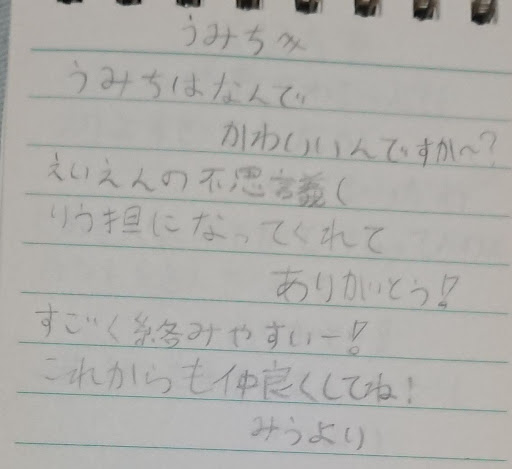 うみちゃ
うみちはなんで
かわいいんですか〜?
えいえんの不思議(
りう担になってくれて
ありがとう!
すごく絡みやすいー!
これからも仲良くしてね!
みうより